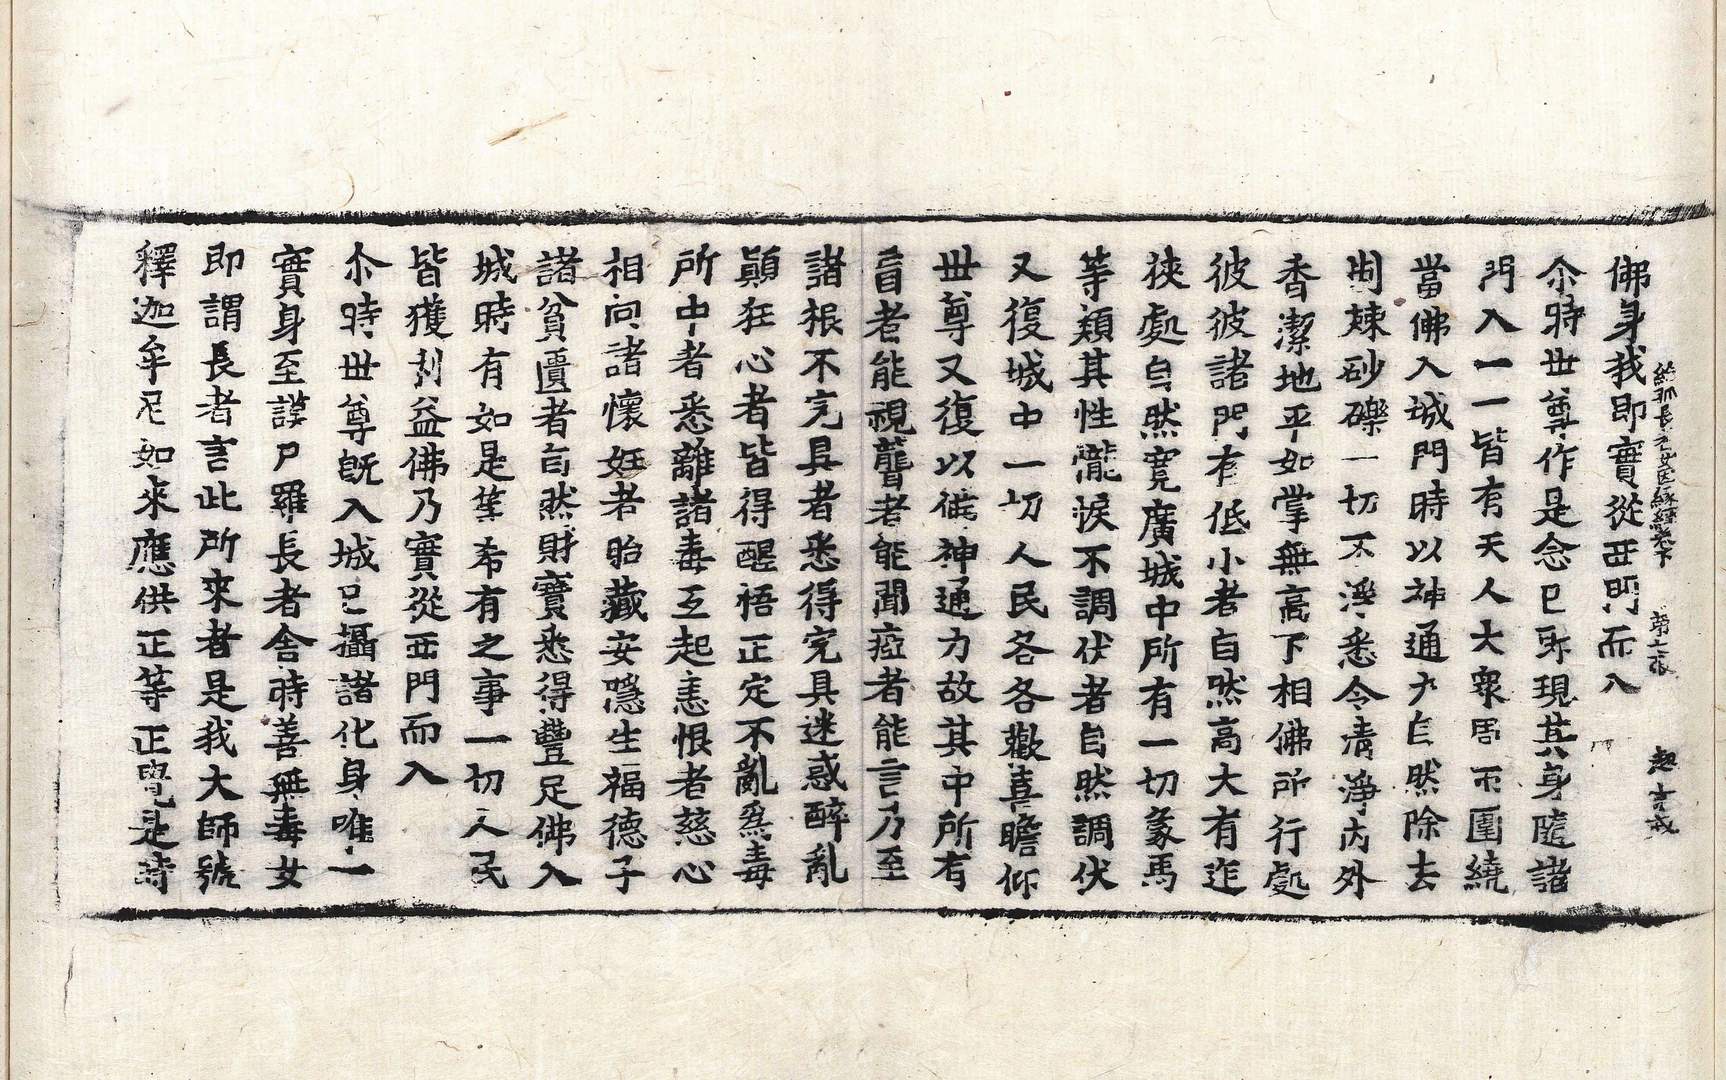 給孤長者女因緣經卷下 第二張 起 言戒
佛身我即實從西門而入
尒時世尊作是念已即現其身隨諸
門入一一皆有天人大衆周帀圍繞
當佛入城門時以神通力自然除去
荆棘砂礫一切不淨悉令清淨內外
香潔地平如掌無高下相佛所行處
彼彼諸門有低小者自然高大有迮
狹處自然寬廣城中所有一切象馬
等類其性𢤱悷不調伏者自然調伏
又復城中一切人民各各歡喜瞻仰
世尊又復以彼神通力故其中所有
盲者能視聾者能聞瘂者能言乃至
諸根不完具者悉得完具迷惑醉亂
顚狂心者皆得醒悟正定不亂爲毒
所中者悉離諸毒互起恚恨者慈心
相向諸懷妊者胎藏安隱生福德子
諸貧匱者自然財寶悉得豐足佛入
城時有如是等希有之事一切人民
皆獲利益佛乃實從西門而入
尒時世尊旣入城已攝諸化身唯一
實身至謨尸羅長者舍時善無毒女
即謂長者言此所來者是我大師號
釋迦牟尼如來應供正等正覺是時